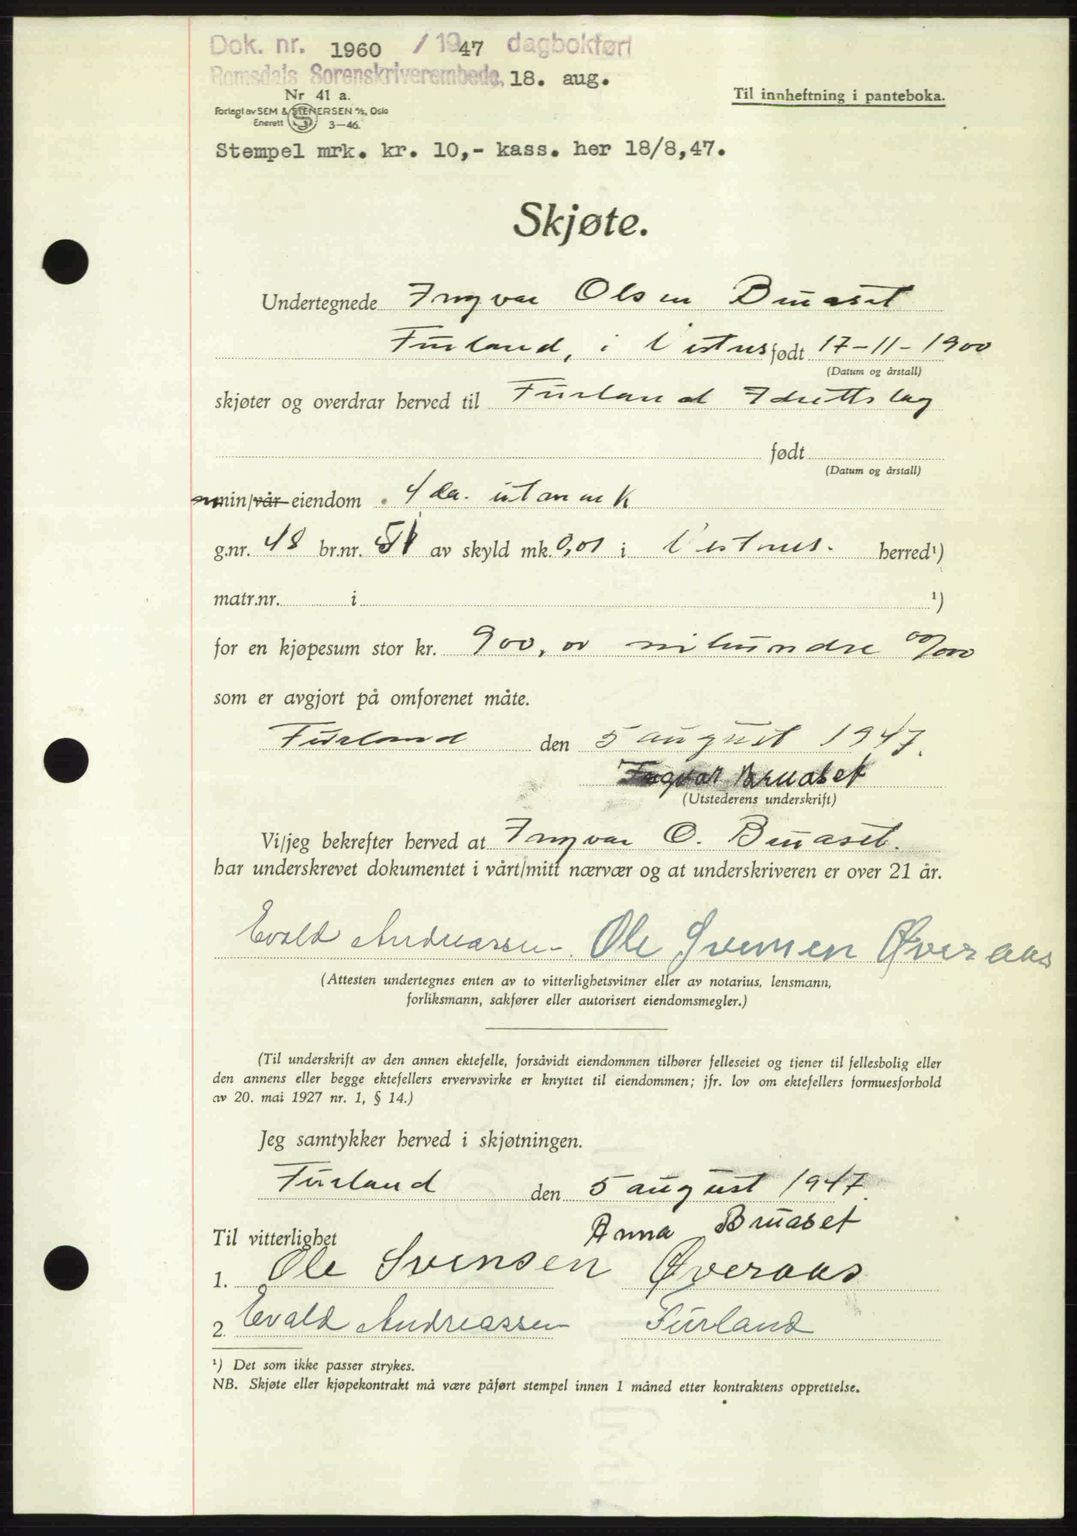 Dok. nr. 1960 / 1947 dagbokført
Romsdals Sorenskriverembede, 18. aug.
Nr 41 a.
Til innheftning i panteboka.
Forlagt av SEM & STENERSEN A/S, Oslo
Enerett 3—46.
Stempel mrk. kr. 10,- kass. her 18/8,47.
Skjøte.
Undertegnede Ingvar Olsen Bruaset
Furland, i Vestnes født 17-11-1900
(Datum og årstall)
skjøter og overdrar herved til Furland Idrettslag
født
(Datum og årstall)
min/vår eiendom 4 da. utmark
g.nr. 48 br.nr. 51 av skyld mk. 0,01 i Vestnes. herred¹)
matr.nr. i ¹)
for en kjøpesum stor kr. 900, nihundre 00/000
som er avgjort på omforenet måte.
Furland den 5 august 1947.
Ingvar Bruaset
(Utstederens underskrift)
Vi/jeg bekrefter herved at Ingvar O. Bruaset.
har underskrevet dokumentet i vårt/mitt nærvær og at underskriveren er over 21 år.
Evald Andreassen. Ole Svensen Øveraas
(Attesten undertegnes enten av to vitterlighetsvitner eller av notarius, lensmann,
forliksmann, sakfører eller autorisert eiendomsmegler.)
(Til underskrift av den annen ektefelle, forsåvidt eiendommen tilhører felleseiet og tjener til fellesbolig eller
den annens eller begge ektefellers ervervsvirke er knyttet til eiendommen; jfr. lov om ektefellers formuesforhold
av 20. mai 1927 nr. 1, § 14.)
Jeg samtykker herved i skjøtningen.
Furland den 5 august 1947.
Anna Bruaset
Til vitterlighet
1. Ole Svensen Øveraas
2. Evald Andreassen Furland
¹) Det som ikke passer strykes.
NB. Skjøte eller kjøpekontrakt må være påført stempel innen 1 måned etter kontraktens opprettelse.